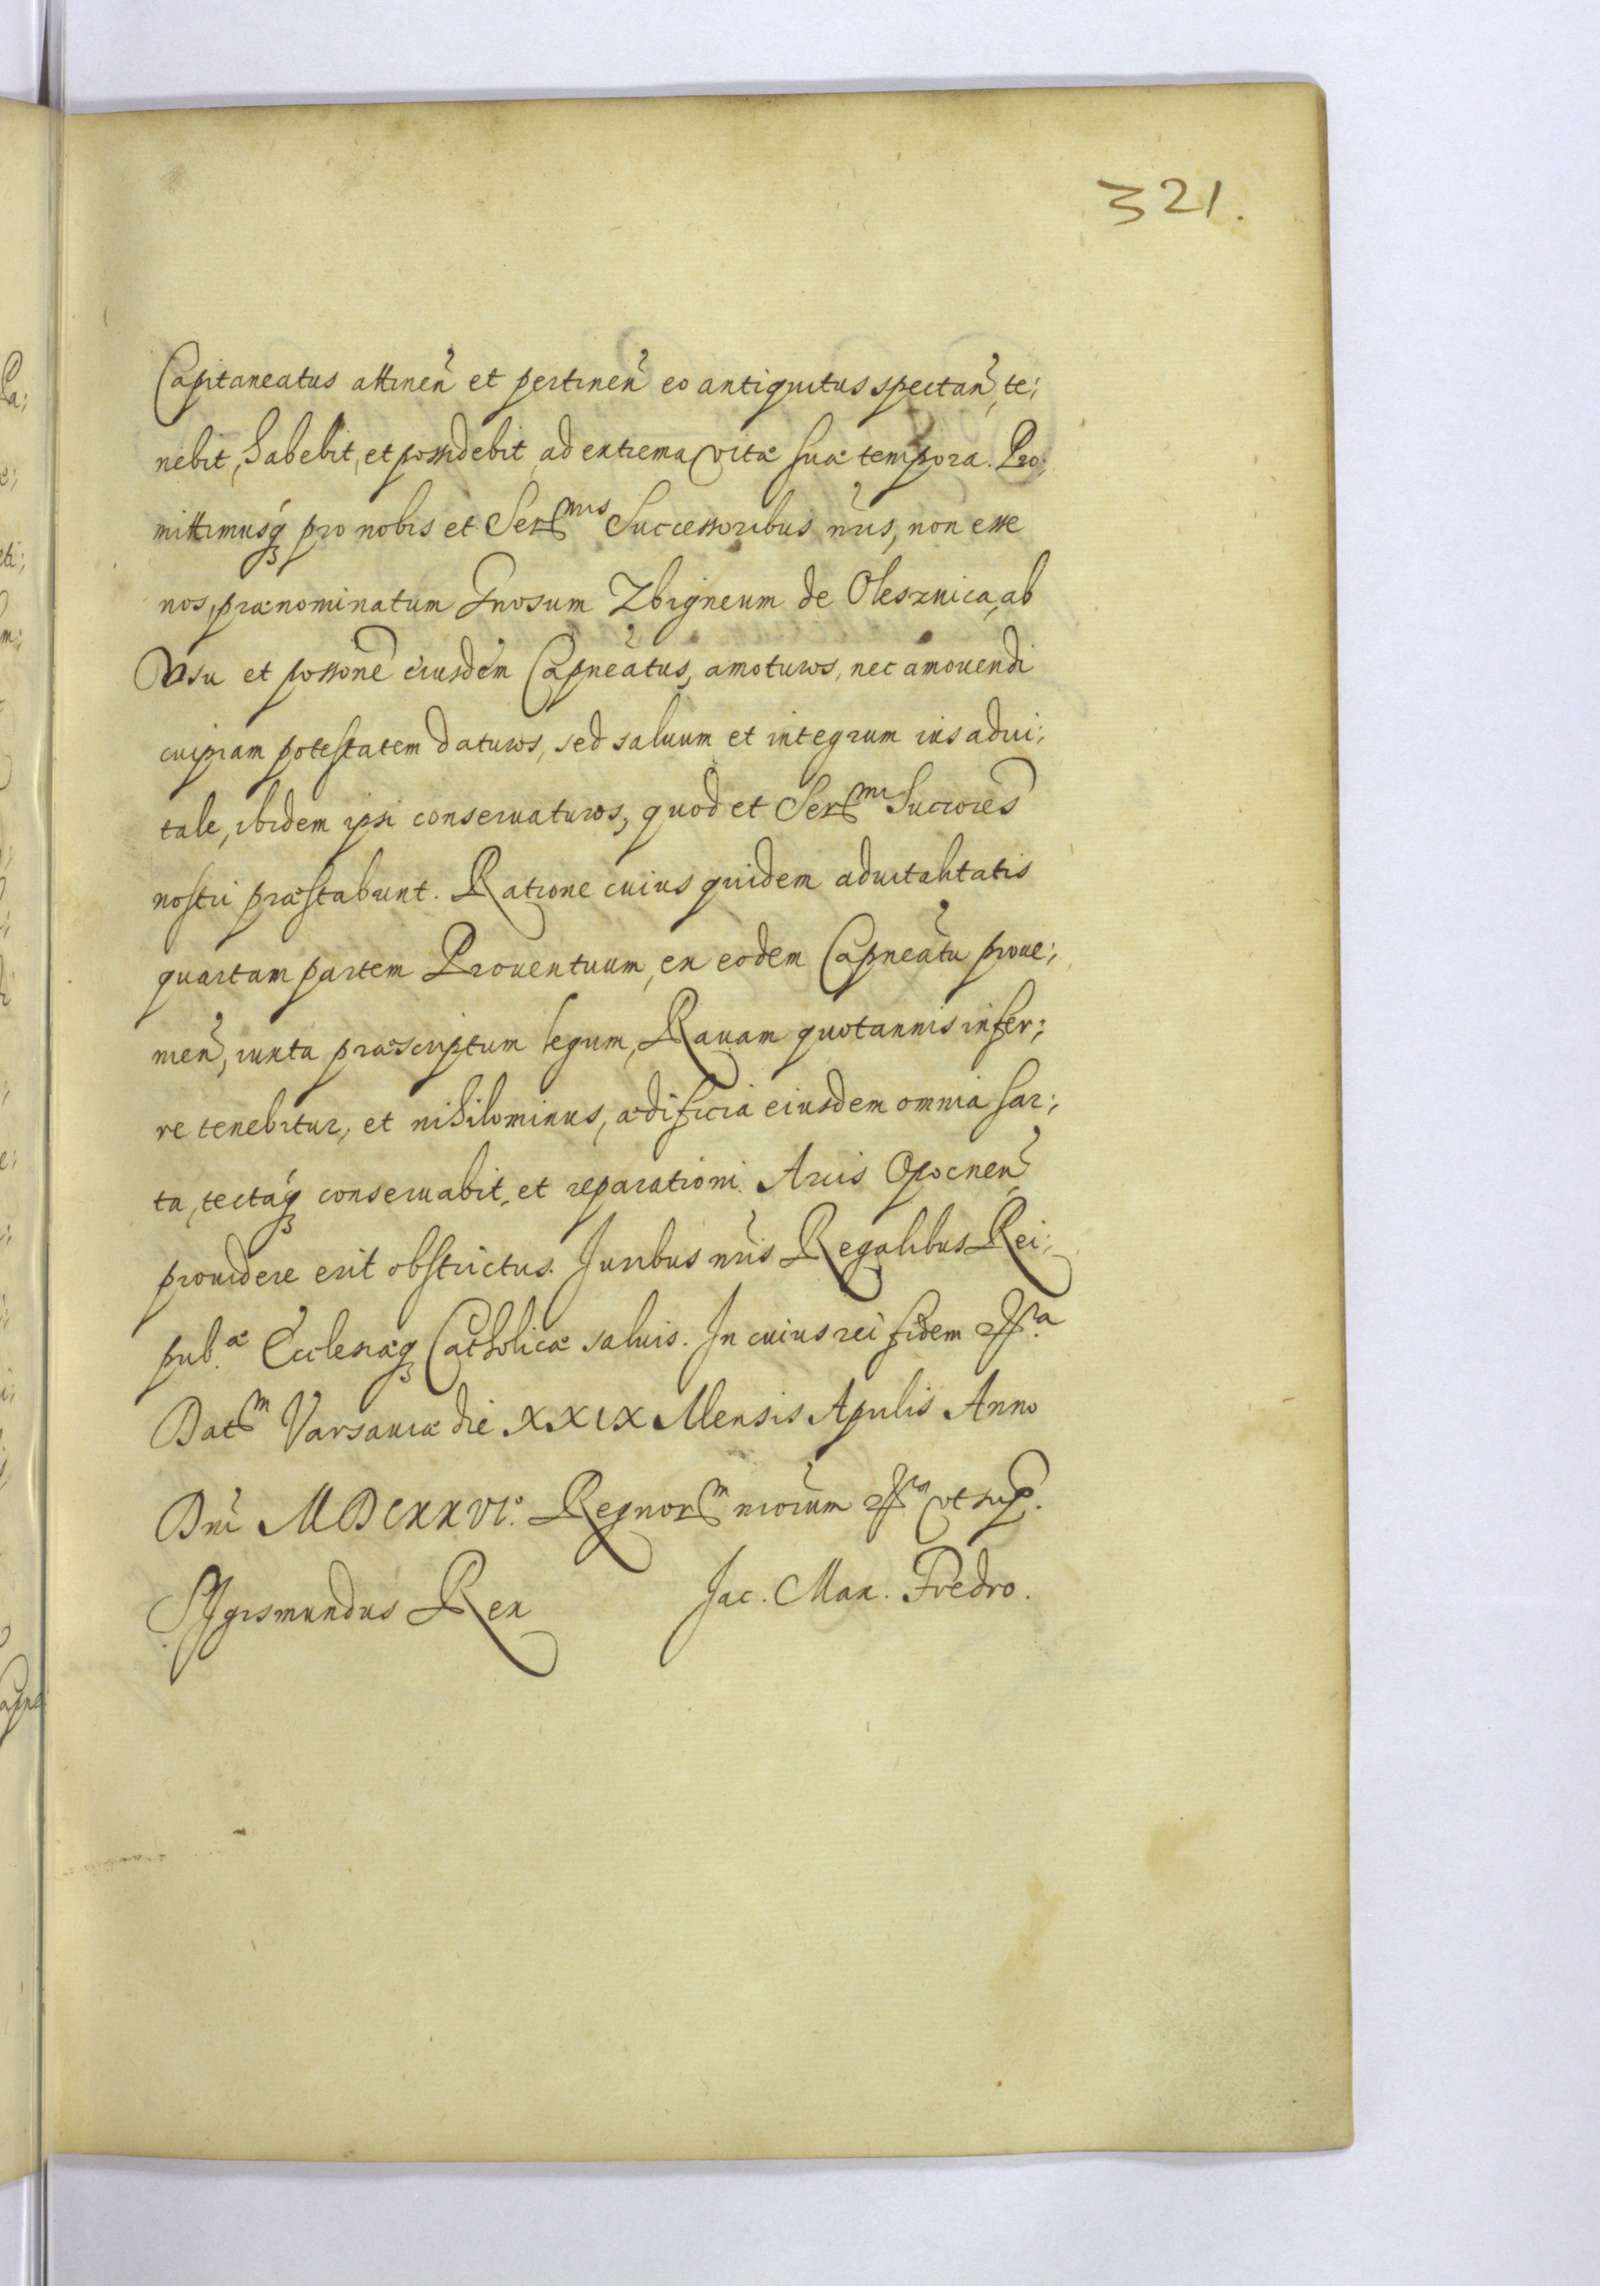 321.
Capitaneatus attinen̄ et pertinen̄ eo antiquitus spectan̄, te;
nebit, habebit, et possidebit, ad extrema vitæ suæ tempora. Pro;
mittimusq́ꝫ pro nobis et Serꝰᵐⁱˢ Successoribus nr̄is, non esse
nos, prænominatum Gnosum Zbigneum de Olesznica, ab
Vsu et possonē eiusdem Capneātus, amoturos, nec amouendi
cuipiam potestatem daturos, sed saluum et integrum ius adui;
tale, ibidem ipsi conseruaturos, quod et Serꝰᵐⁱ Succores̄
nostri præstabunt. Ratione cuius quidem aduitalitatis
quartam partem Prouentuum, ex eodem Capneātu proue;
nien̄, iuxta præscriptum legum, Rauam quotannis infer;
re tenebitur, et nihilominus, ædificia eiusdem omnia sar;
ta, tectáqꝫ conseruabit, et reparationi Arcis Opocnen̄
prouidere erit obstrictus. Juribus nr̄is Regalibus Rei;
pub.æ Ecclesiæqꝫ Catholicæ saluis. In cuius rei fidem
Datꝰᵐ Varsauiæ die XXIX Mensis Aprilis Anno
Dnī MDCXXVIº. Regnorꝰᵐ nrorūm vt sup.
Sigismundus Rex Jac. Max. Fredro.